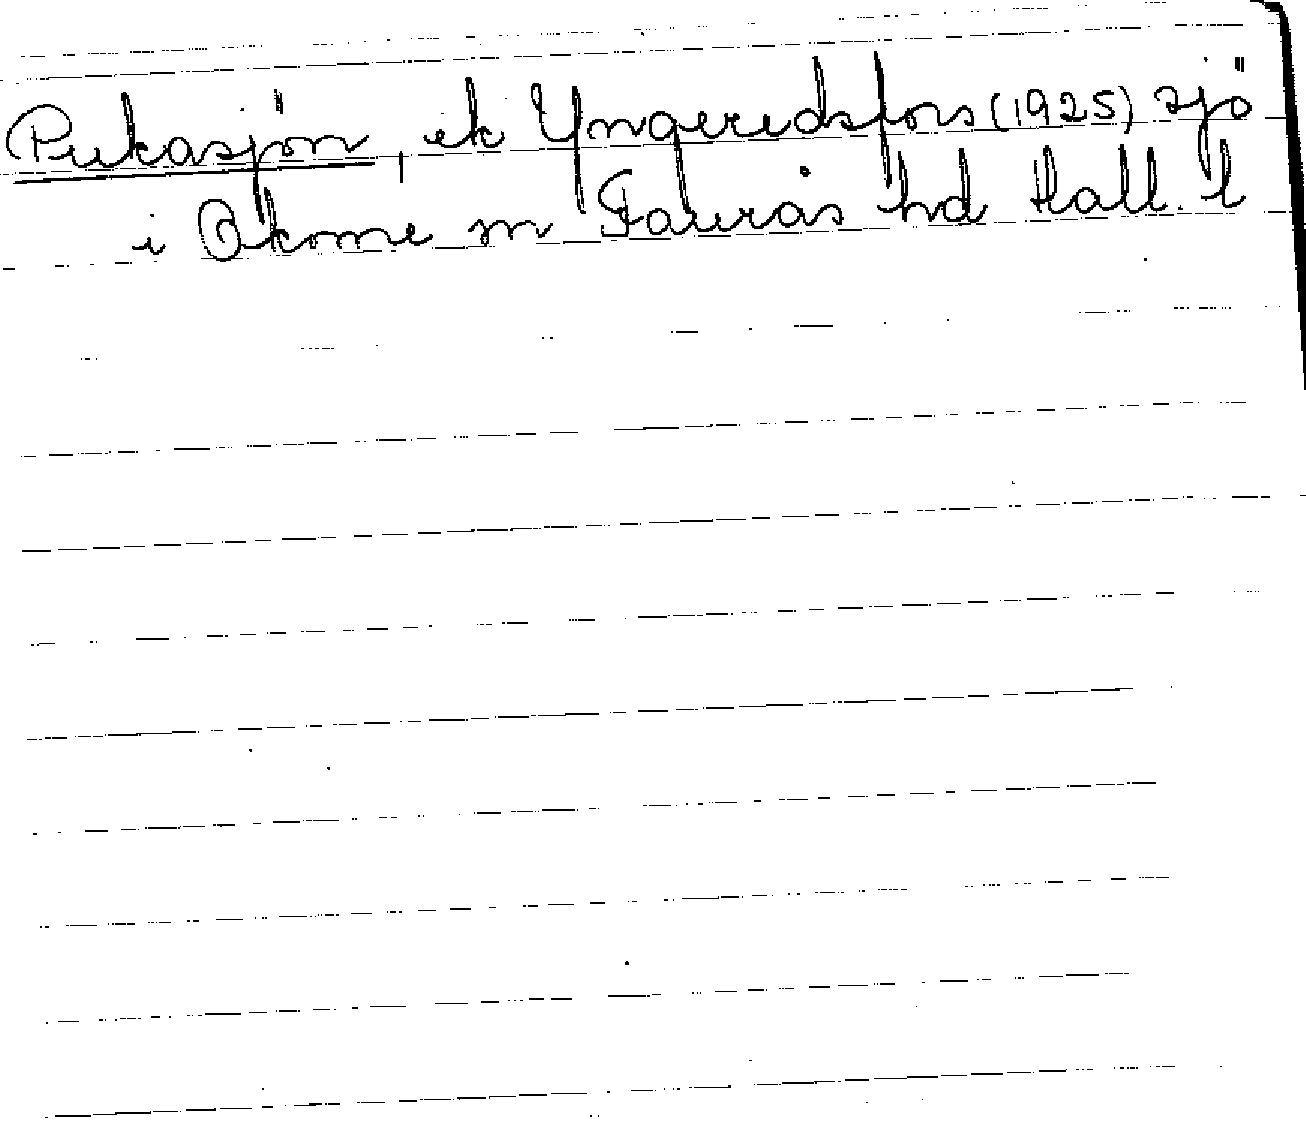 Pukasjön, ek Yngeredsfors (1925) sjö
i Okome sn Faurås hd Hall. l